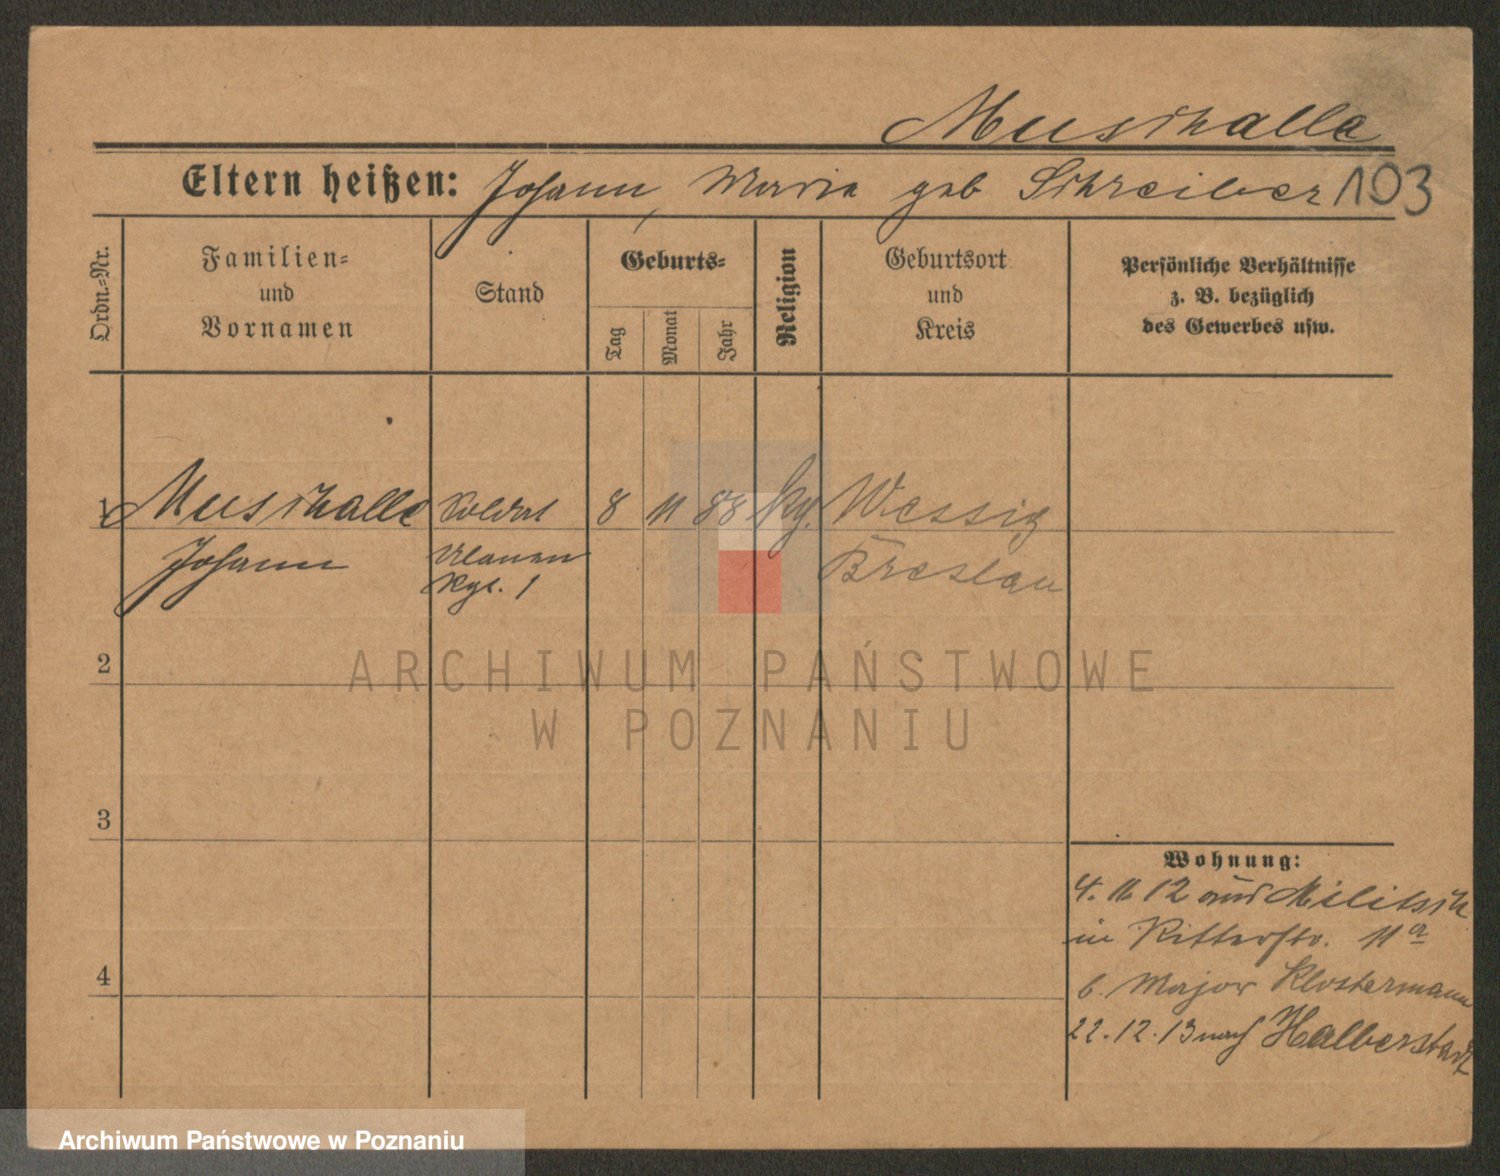 Muschalle
Eltern heißen: Johann, Maria geb Schreiber 103
Ordn.-Nr.
Familien- und Vornamen
Stand
Geburts-
Tag
Monat
Jahr
Religion
Geburtsort und Kreis
Persönliche Verhältnisse
z. B. bezüglich
des Gewerbes usw.
1 Muschalle Soldat 8 11 88 Wessig
Johann Ulanen Breslau
Rgt. 1
2
ARCHIWUM PAŃSTWOWE
W POZNANIU
3
Wohnung:
4. 11 12 aus Militsch
in Ritterstr. 11a
b. Major Klostermann
4
22.12.13 nach Halberstadt
Archiwum Państwowe w Poznaniu